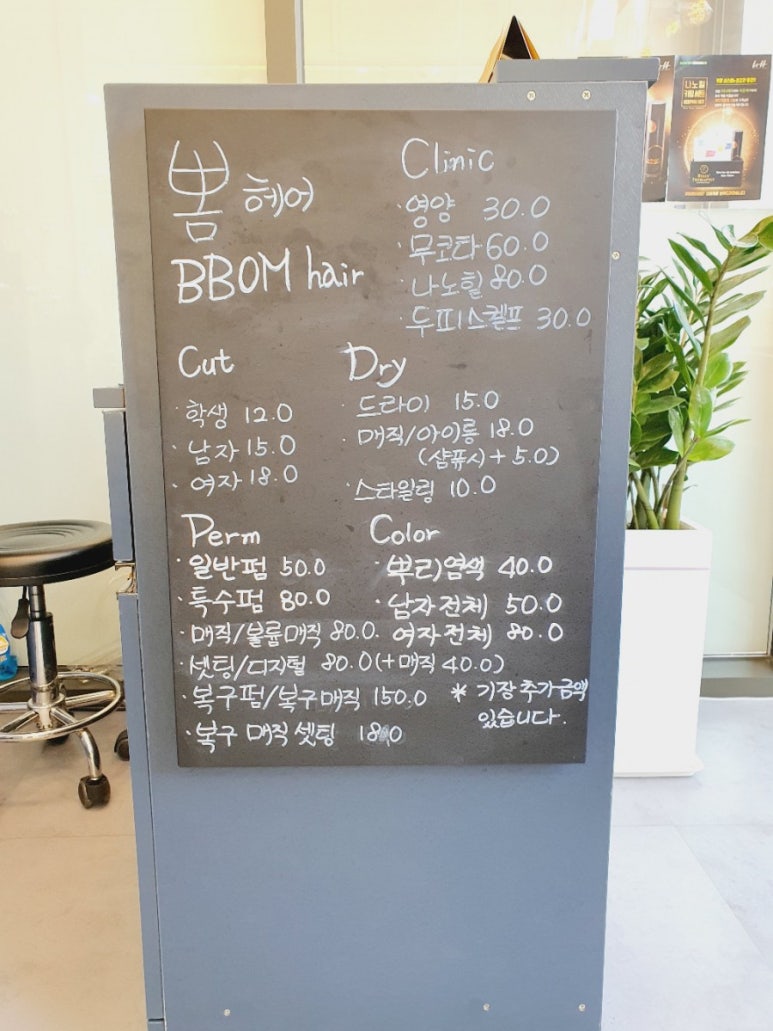 뽐 헤어
BBOM hair
Clinic
· 영양 30.0
· 무코타 60.0
· 나노힐 80.0
· 두피스켈프 30.0
Cut
· 학생 12.0
· 남자 15.0
· 여자 18.0
Dry
· 드라이 15.0
· 매직/아이롱 18.0
(샴퓨시 + 5.0)
· 스타일링 10.0
Perm
· 일반펌 50.0
· 특수펌 80.0
· 매직/볼륨매직 80.0.
· 셋팅/디지털 80.0(+매직 40.0)
· 복구펌/복구매직 150.0
· 복구 매직셋팅 180
Color
· 뿌리염색 40.0
· 남자전체 50.0
여자전체 80.0
* 기장추가금액
있습니다.
나노힐